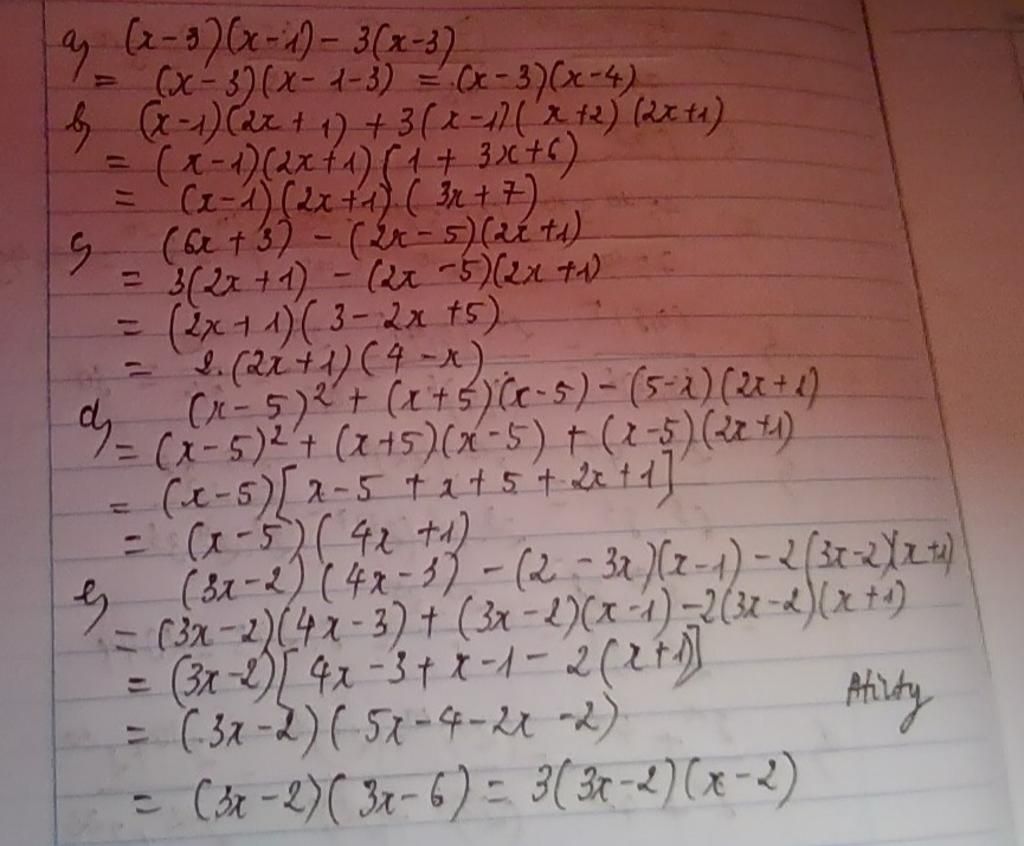 a) (x-3)(x-1) - 3(x-3)
= (x-3)(x-1-3) = (x-3)(x-4)
b) (x-1)(2x+1) + 3(x-1)(x+2)(2x+1)
= (x-1)(2x+1)(1 + 3x+6)
= (x-1)(2x+1)(3x+7)
c) (6x+3) - (2x-5)(2x+1)
= 3(2x+1) - (2x-5)(2x+1)
= (2x+1)(3-2x+5)
= 2.(2x+1)(4-x)
d) (x-5)² + (x+5)(x-5) - (5-x)(2x+1)
= (x-5)² + (x+5)(x-5) + (x-5)(2x+1)
= (x-5)[x-5 + x+5 + 2x+1]
= (x-5)(4x+1)
e) (3x-2)(4x-3) - (2-3x)(x-1) - 2(3x-2)(x+1)
= (3x-2)(4x-3) + (3x-2)(x-1) - 2(3x-2)(x+1)
= (3x-2)[4x-3+x-1-2(x+1)]
= (3x-2)(5x-4-2x-2)
= (3x-2)(3x-6) = 3(3x-2)(x-2)